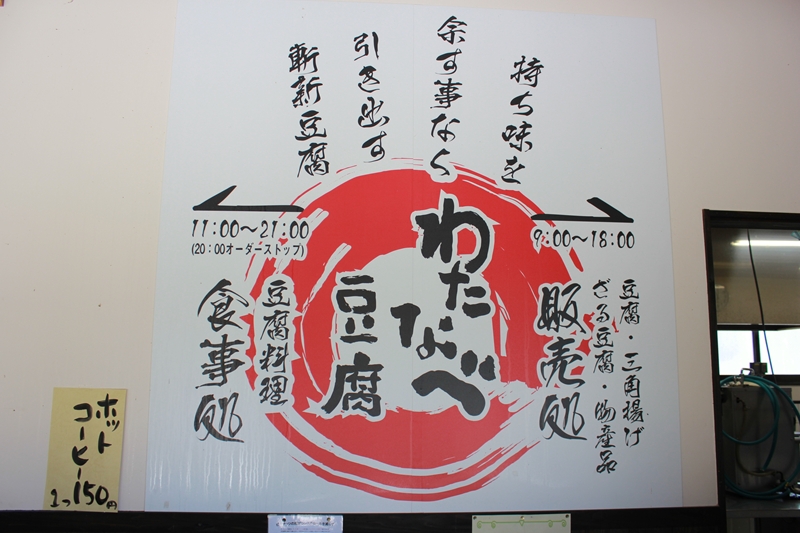 持ち味を
余す事なく
引き出す
斬新豆腐
わたなべ
豆腐
9:00～18:00
販売処
豆腐・三角揚げ
ざる豆腐・物産品
11:00～21:00
(20:00オーダーストップ)
豆腐料理
食事処
ホット
コーヒー
1つ150円